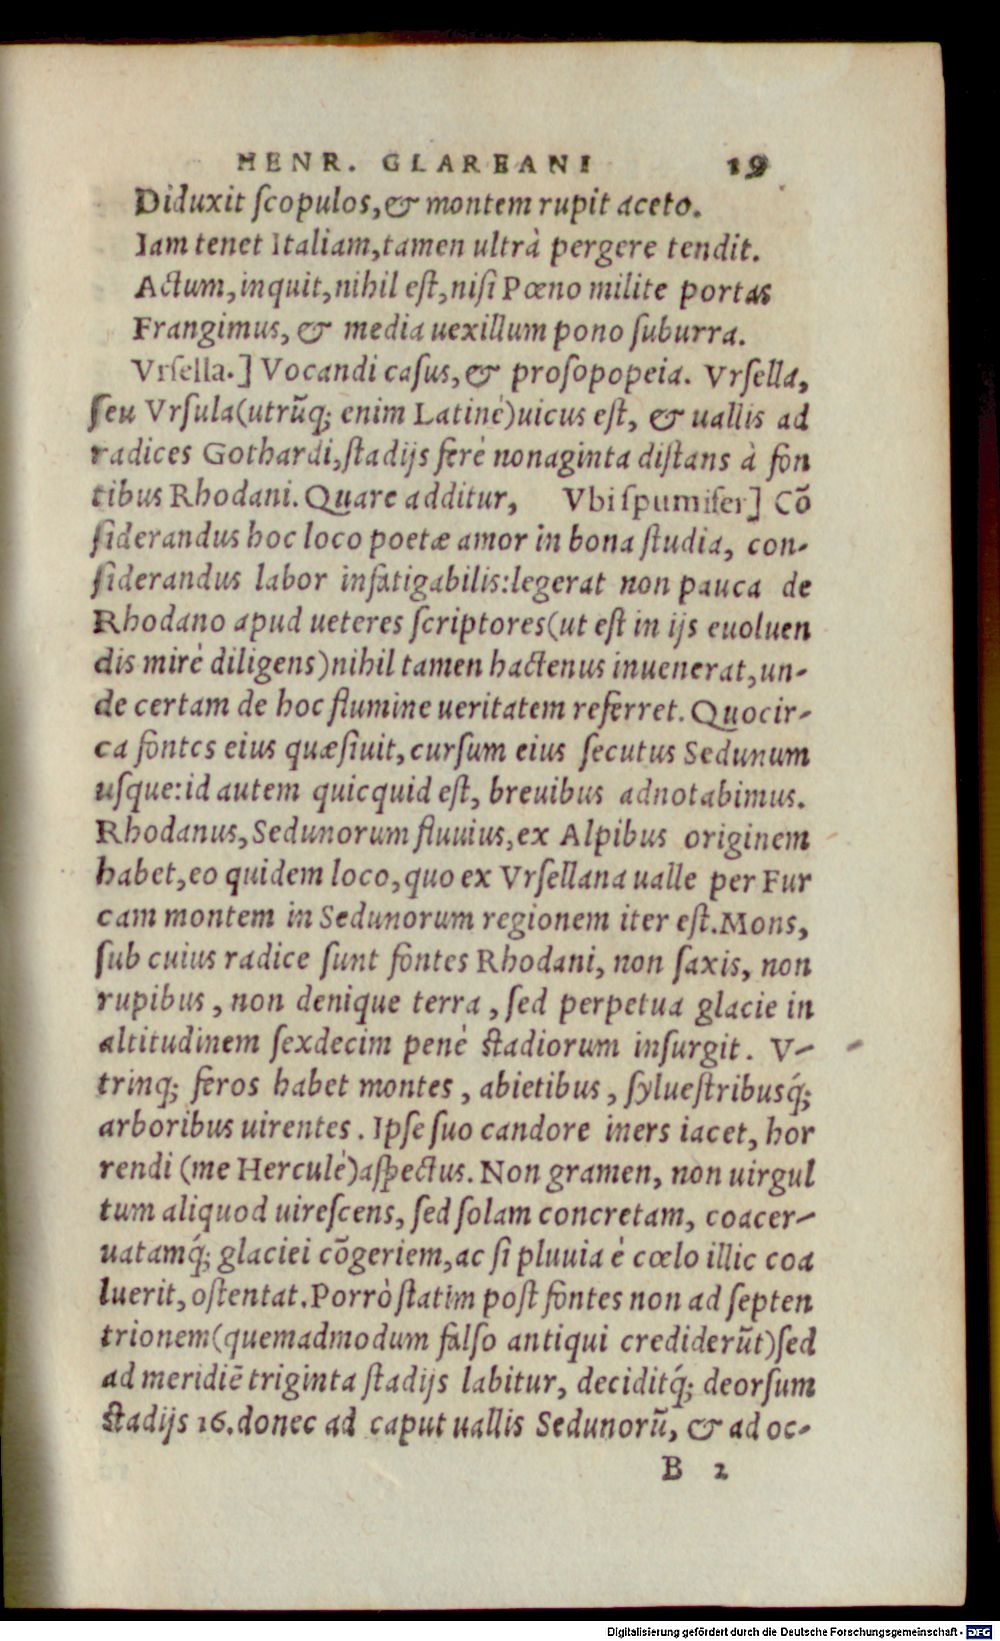 HENR. GLAREANI 19
Diduxit ſcopulos, & montem rupit aceto.
Iam tenet Italiam, tamen ultrà pergere tendit.
Actum, inquit, nihil eſt, niſi Pœno milite portas
Frangimus, & media uexillum pono ſuburra.
Vrſella.] Vocandi caſus, & proſopopeia. Vrſella,
ſeu Vrſula(utrũq; enim Latinè)uicus eſt, & uallis ad
radices Gothardi, ſtadijs ferè nonaginta diſtans à fon
tibus Rhodani. Quare additur, Vbi ſpumifer] Cõ
ſiderandus hoc loco poetæ amor in bona ſtudia, con-
ſiderandus labor infatigabilis: legerat non pauca de
Rhodano apud ueteres ſcriptores(ut eſt in ijs euoluen
dis mirè diligens)nihil tamen hactenus inuenerat, un-
de certam de hoc flumine ueritatem referret. Quocir-
ca fontes eius quæſiuit, curſum eius ſecutus Sedunum
uſque: id autem quicquid eſt, breuibus adnotabimus.
Rhodanus, Sedunorum fluuius, ex Alpibus originem
habet, eo quidem loco, quo ex Vrſellana ualle per Fur
cam montem in Sedunorum regionem iter eſt. Mons,
ſub cuius radice ſunt fontes Rhodani, non ſaxis, non
rupibus, non denique terra, ſed perpetua glacie in
altitudinem ſexdecim penè ſtadiorum inſurgit. V-
trinq; feros habet montes, abietibus, ſylueſtribusq́;
arboribus uirentes. Ipſe ſuo candore iners iacet, hor
rendi (me Herculè)aſpectus. Non gramen, non uirgul
tum aliquod uireſcens, ſed ſolam concretam, coacer-
uatamq́; glaciei cõgeriem, ac ſi pluuia è cœlo illic coa
luerit, oſtentat. Porrò ſtatim poſt fontes non ad ſepten
trionem(quemadmodum falſo antiqui crediderũt)ſed
ad meridiẽ triginta ſtadijs labitur, deciditq́; deorſum
ſtadijs 16. donec ad caput uallis Sedunorũ, & ad oc-
B 2
Digitalisierung gefördert durch die Deutsche Forschungsgemeinschaft - DFG